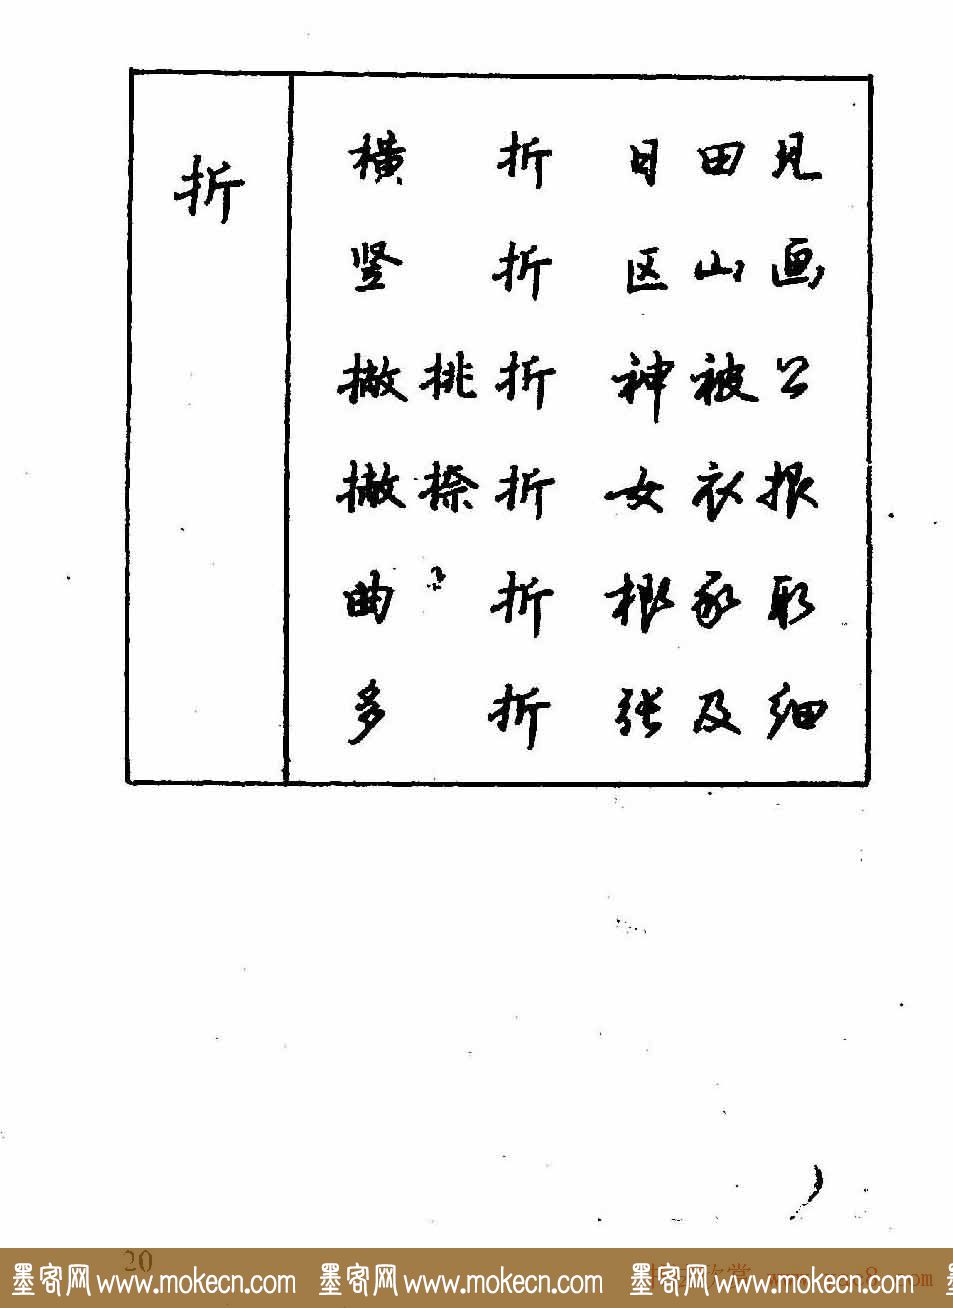 折
横 折 日 田 见
竖 折 区 山 画
撇 挑 折 神 被 公
撇 捺 折 女 衣 振
曲 折 根
多 折 张 及 细
20
墨客网 www.mokecn.com 墨客网 www.mokecn.com 墨客网 www.mokecn.com